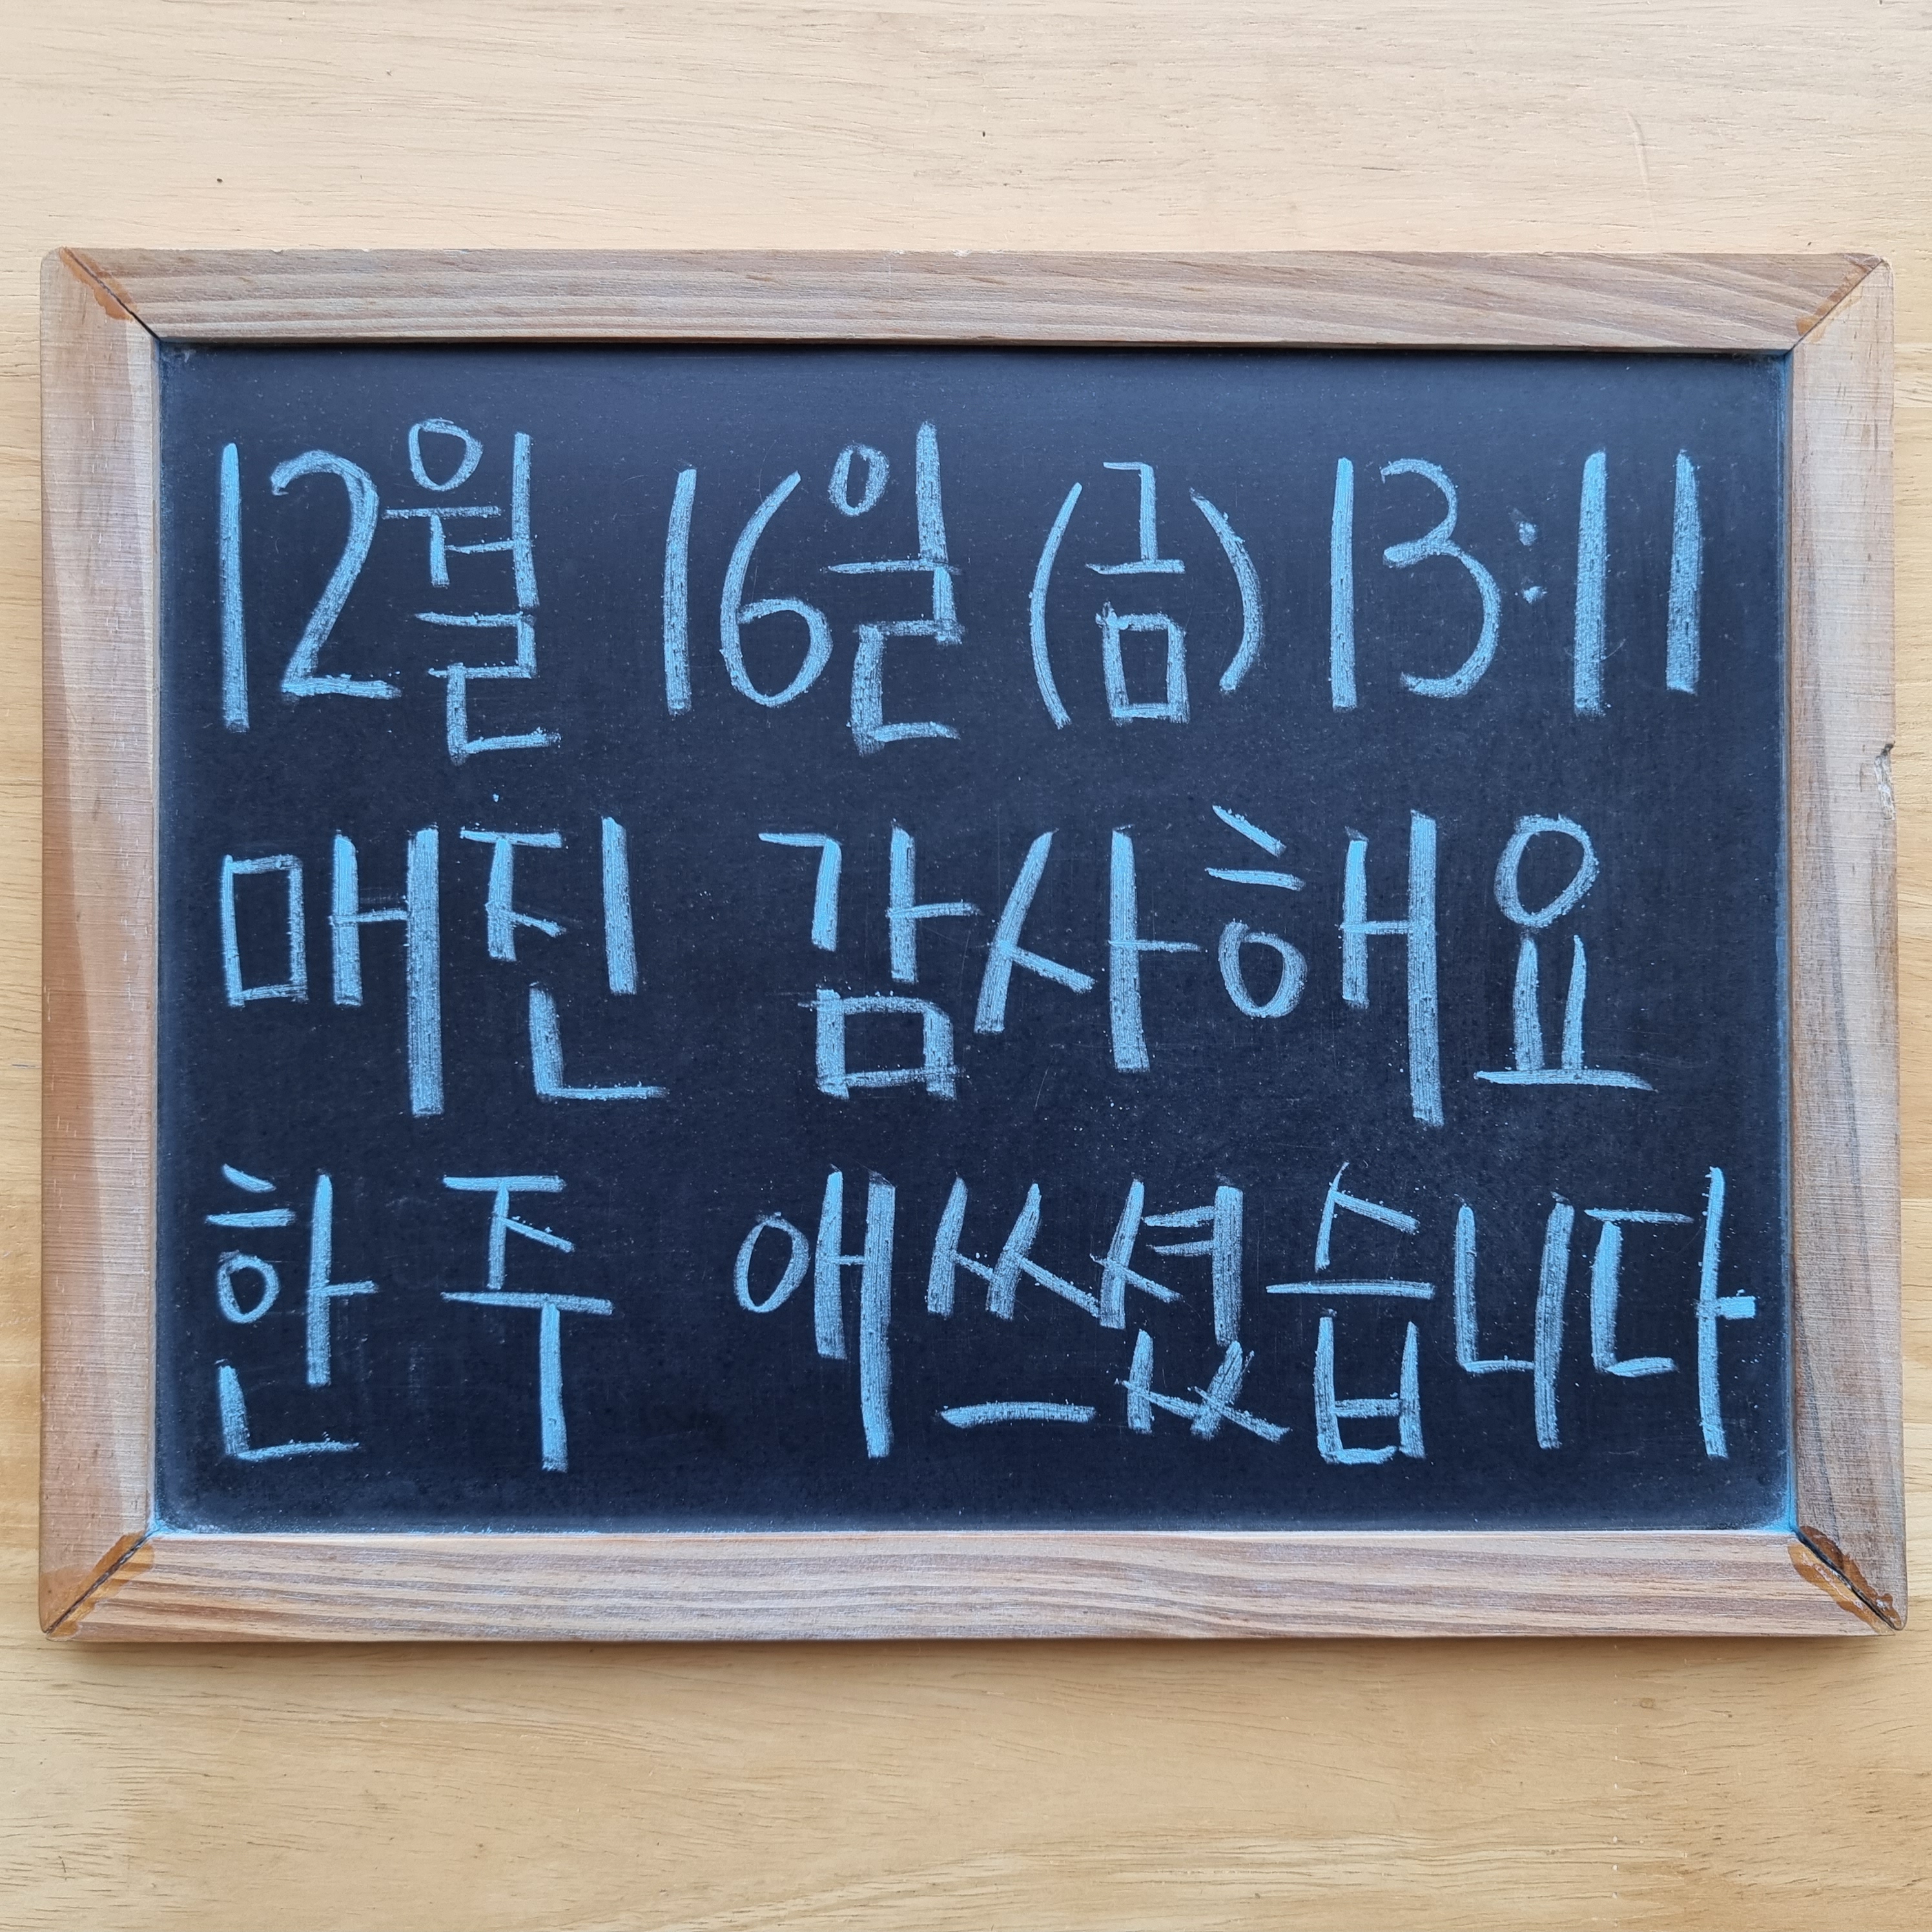 12월 16일 (금) 13:11
매진 감사해요
한 주 애쓰셨습니다